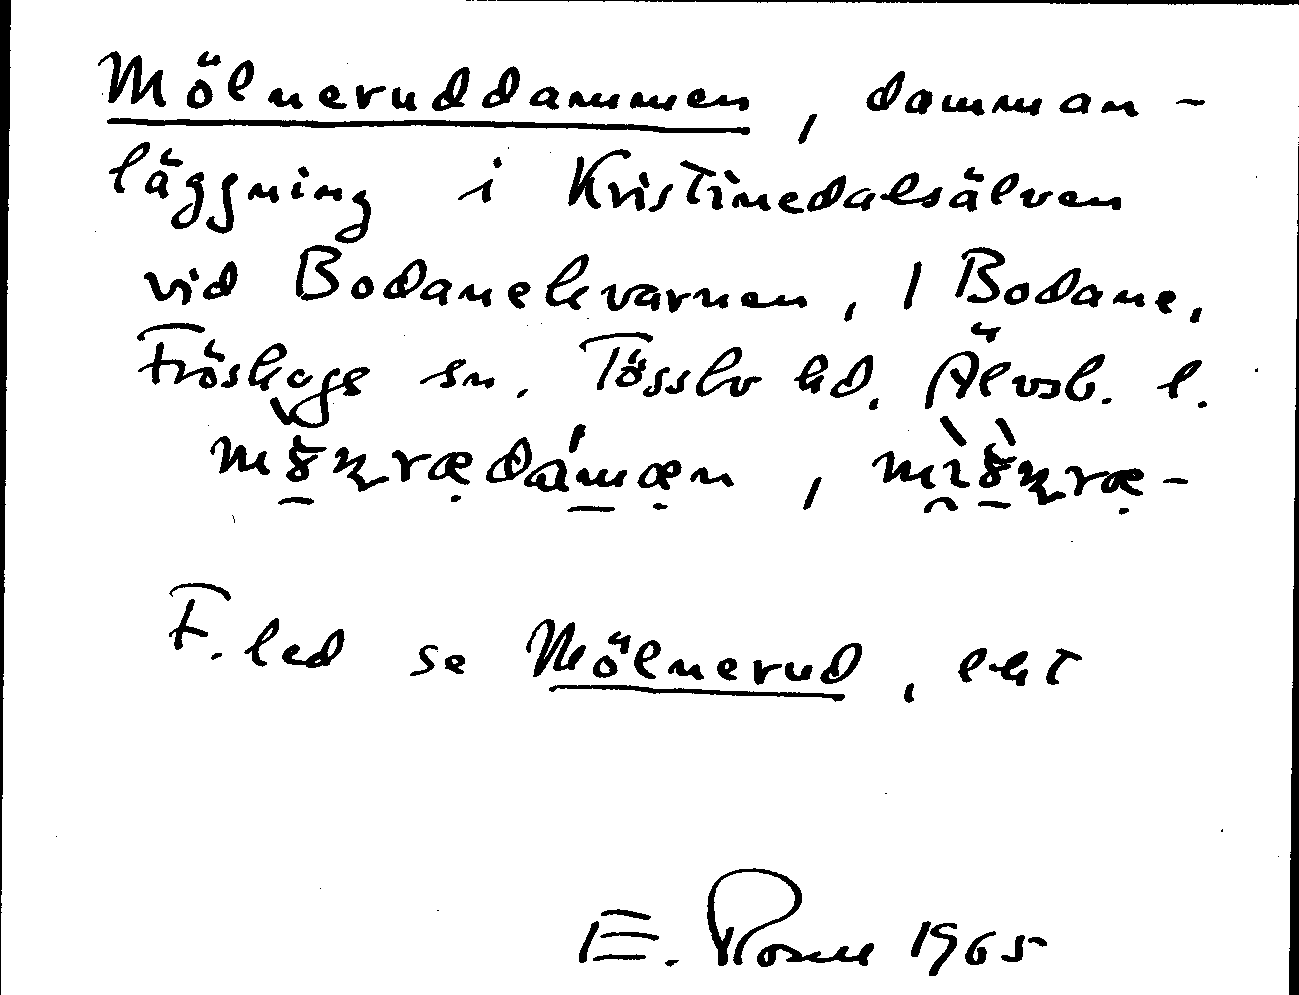 Mölneruddammen, damman-
läggning i Kristinedalsälven
vid Bodanekvarnen, 1 Bodane,
Fröskoge sn. Tössbo hd. Älvsb. l.
F. led se Mölnerud, ekt
E. Rosell 1965